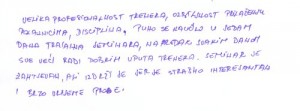 VELIKA PROFESIONALNOST TRENERA, OZBILJNOST POLAZNIKA
DISCIPLINA, PUNO SE NAUČILO U SEDAM
DANA TRAJANJA SEMINARA, NAPREDAK SVAKIM DANOM
SVE VEĆI RADI DOBRIH UPUTA TRENERA. SEMINAR JE
ZAHTJEVAN, ALI IZDRŽI SE JER JE STRAŠNO INTERESANTAN
I BRZO VRIJEME PROĐE.